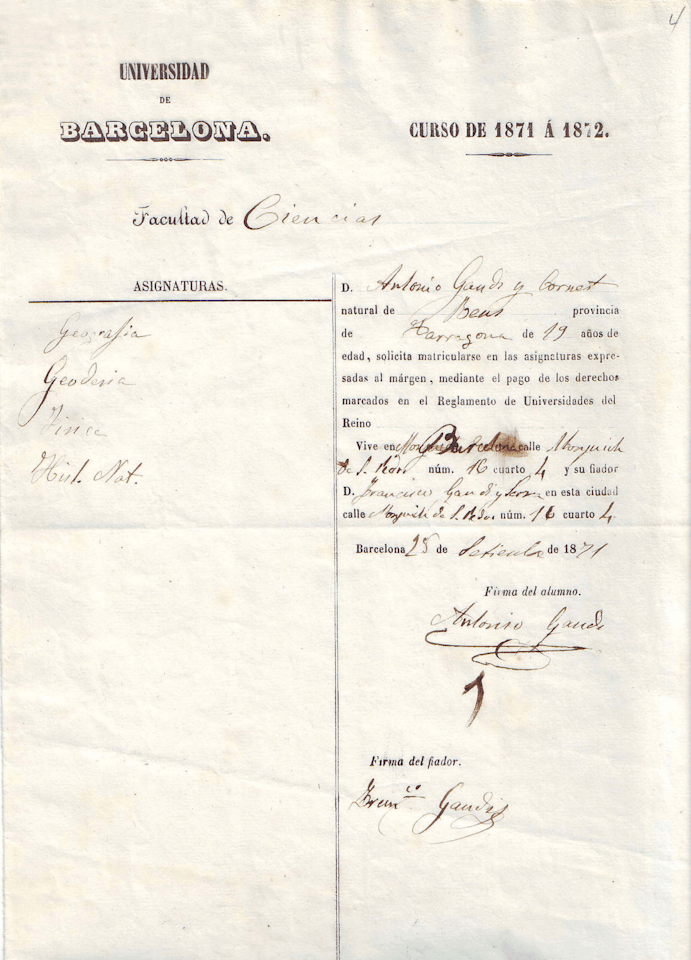 4
UNIVERSIDAD
DE
BARCELONA.
CURSO DE 1871 Á 1872.
Facultad de Ciencias
ASIGNATURAS.
Geografia
Geodesia
Fisica
Hist. Nat.
D. Antonio Gaudi y Cornet
natural de Reus provincia
de Tarragona de 19 años de
edad, solicita matricularse en las asignaturas expre-
sadas al márgen, mediante el pago de los derechos
marcados en el Reglamento de Universidades del
Reino
Vive en Barcelona calle
de S. núm. 16 cuarto 4 y su fiador
D. Francisco Gaudi y Serra en esta ciudad
calle de S. Pedro núm. 16 cuarto 4
Barcelona 25 de Setiembre de 1871
Firma del alumno.
Antonio Gaudi
Firma del fiador.
Franco Gaudi